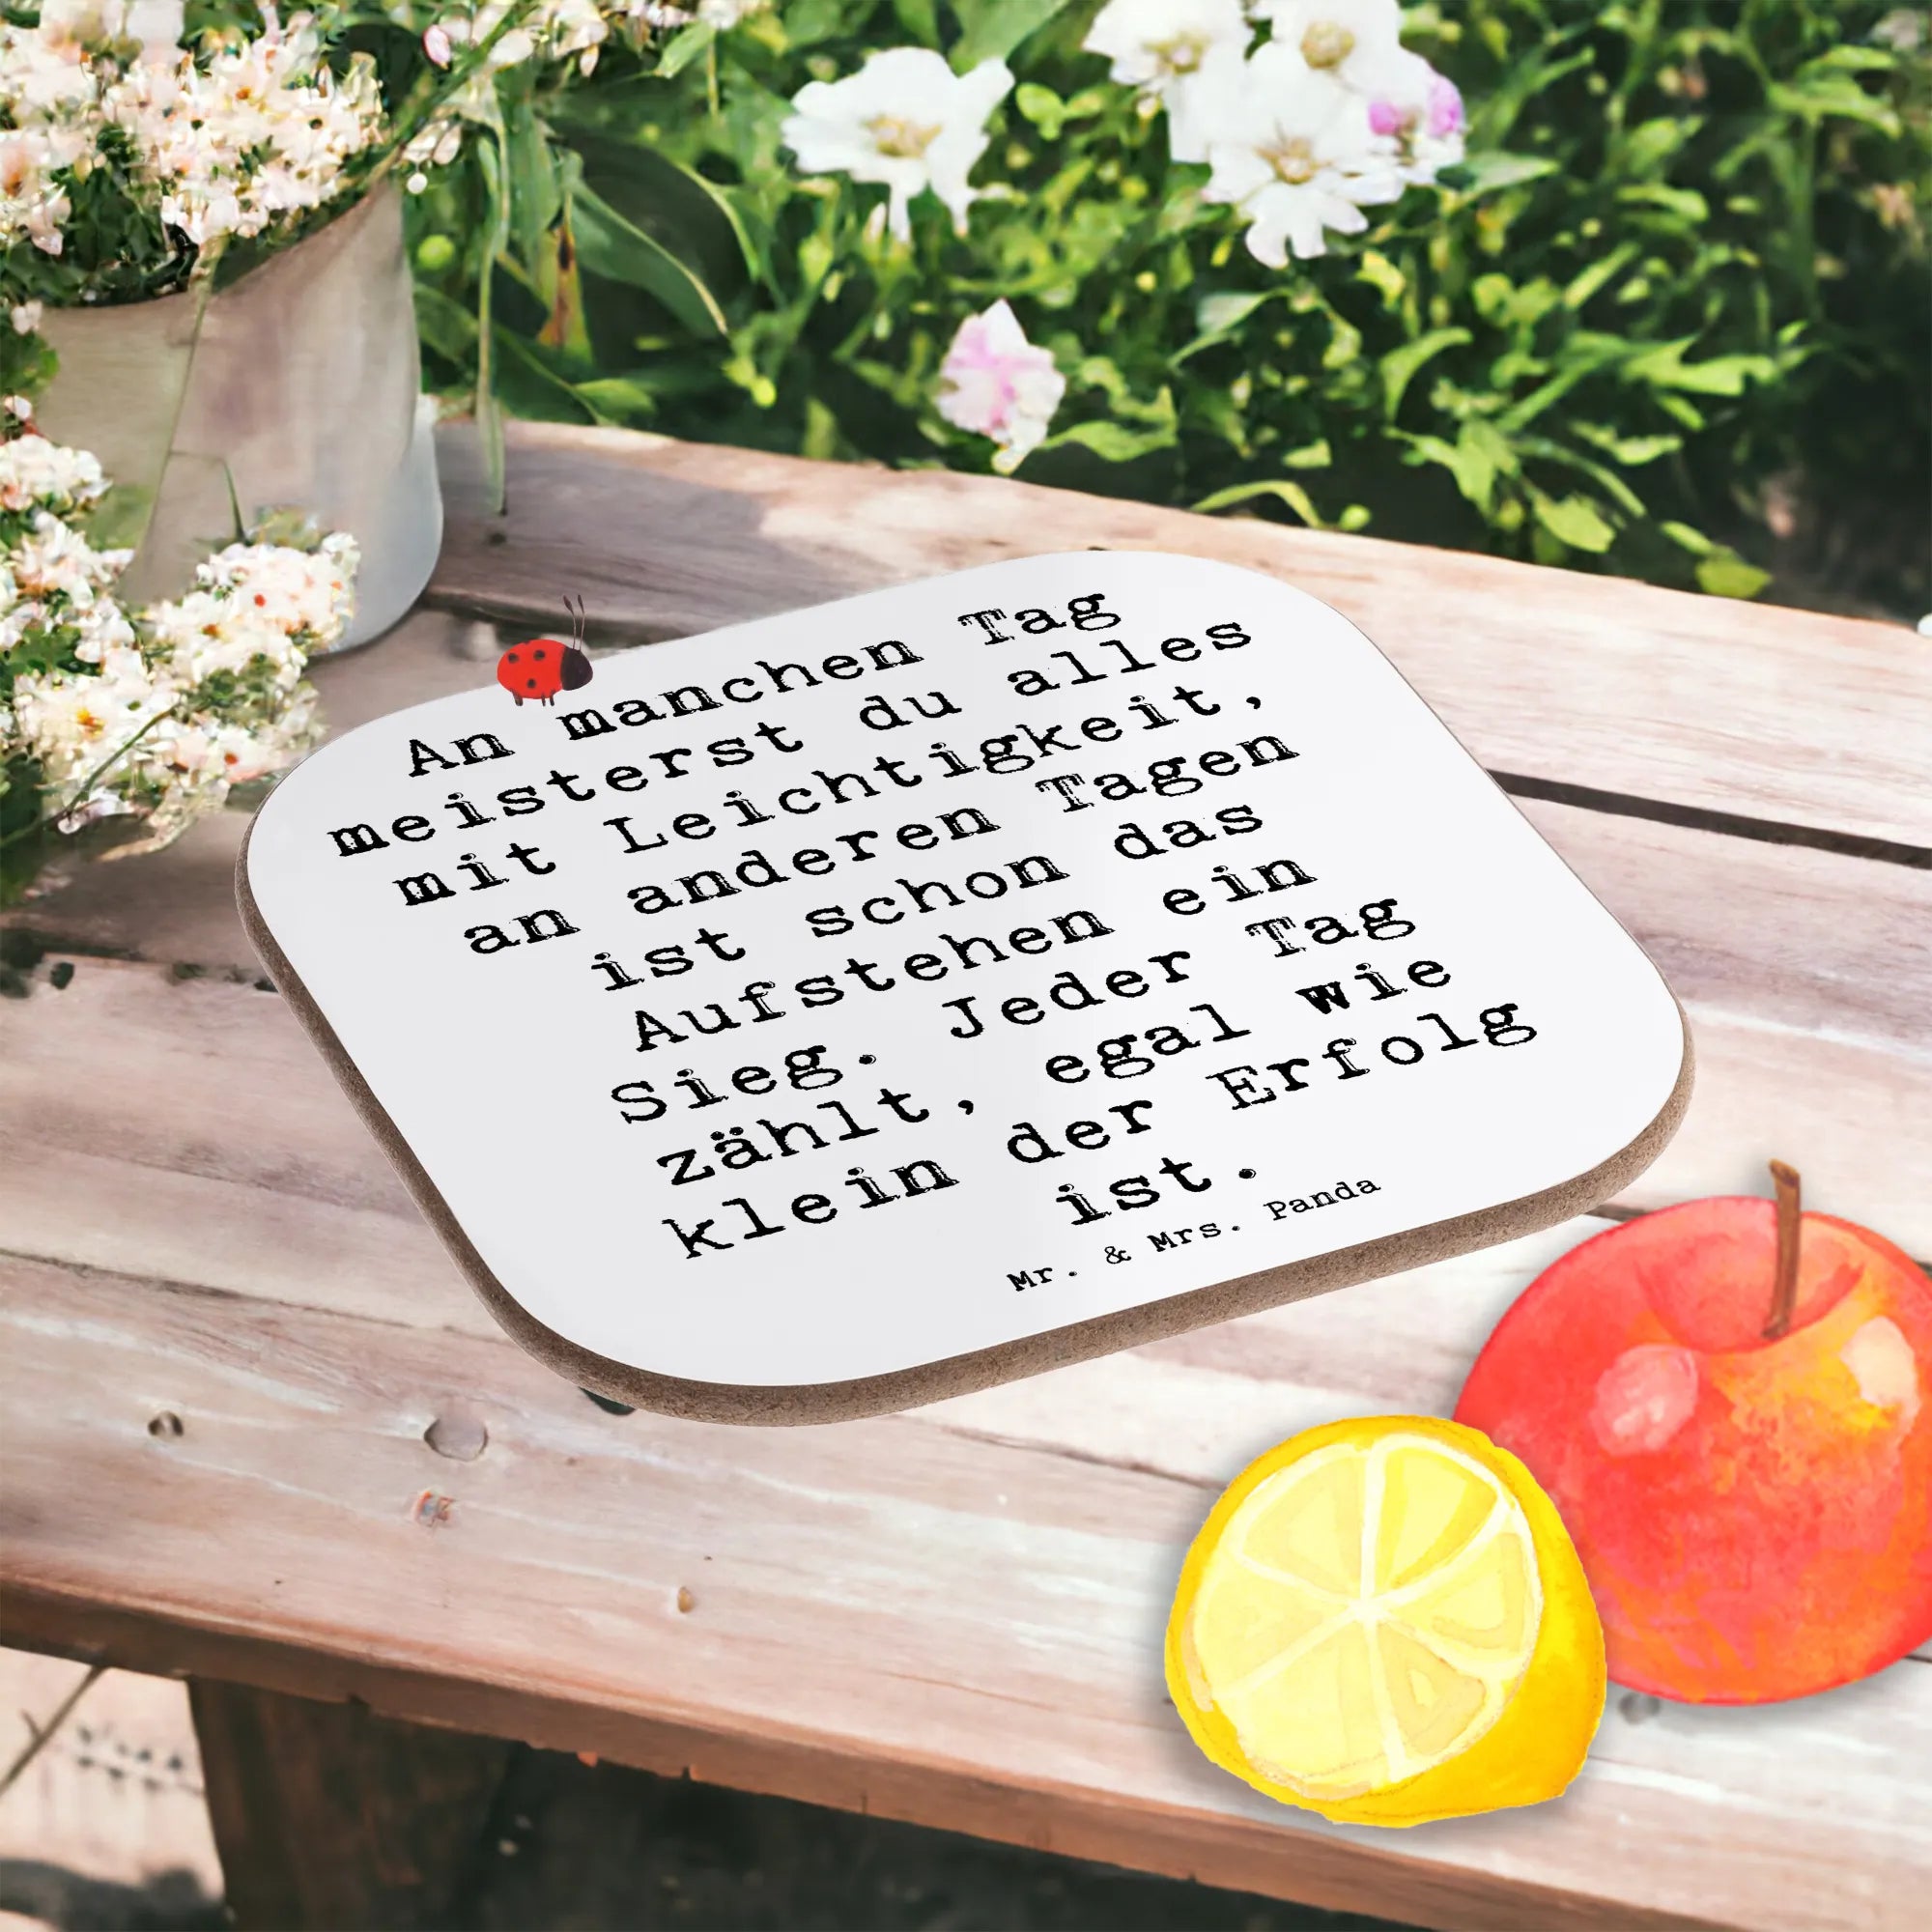 An manchen Tag
meisterst du alles
mit Leichtigkeit,
an anderen Tagen
ist schon das
Aufstehen ein
Sieg. Jeder Tag
zählt, egal wie
klein der Erfolg
ist.
Mr. & Mrs. Panda